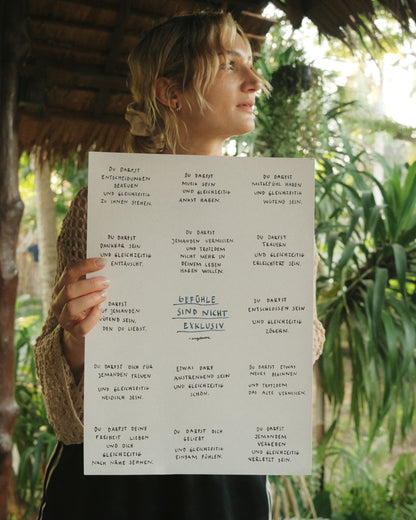 DU DARFST
ENTSCHEIDUNGEN
BEREUEN
UND GLEICHZEITIG
ZU IHNEN STEHEN.
DU DARFST
MUTIG SEIN
UND GLEICHZEITIG
ANGST HABEN.
DU DARFST
MITGEFÜHL HABEN
UND GLEICHZEITIG
WÜTEND SEIN.
DU DARFST
DANKBAR SEIN
UND GLEICHZEITIG
ENTTÄUSCHT.
DU DARFST
JEMANDEN VERMISSEN
UND TROTZDEM
NICHT MEHR IN
DEINEM LEBEN
HABEN WOLLEN.
DU DARFST
TRAUERN
UND GLEICHZEITIG
ERLEICHTERT SEIN.
DARFST
AUF JEMANDEN
WÜTEND SEIN,
DEN DU LIEBST.
GEFÜHLE
SIND NICHT
EXKLUSIV
DU DARFST
ENTSCHLOSSEN SEIN
UND GLEICHZEITIG
ZÖGERN.
DU DARFST DICH FÜR
JEMANDEN FREUEN
UND GLEICHZEITIG
NEIDISCH SEIN.
ETWAS DARF
ANSTRENGEND SEIN
UND GLEICHZEITIG
SCHÖN.
DU DARFST ETWAS
NEUES BEGINNEN
UND TROTZDEM
DAS ALTE VERMISSEN.
DU DARFST DEINE
FREIHEIT LIEBEN
UND DICH
GLEICHZEITIG
NACH NÄHE SEHNEN.
DU DARFST DICH
GELIEBT
UND GLEICHZEITIG
EINSAM FÜHLEN.
DU DARFST
JEMANDEM
VERGEBEN
UND GLEICHZEITIG
VERLETZT SEIN.